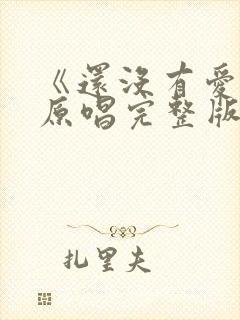 《還沒有愛
原唱完整版
扎里夫